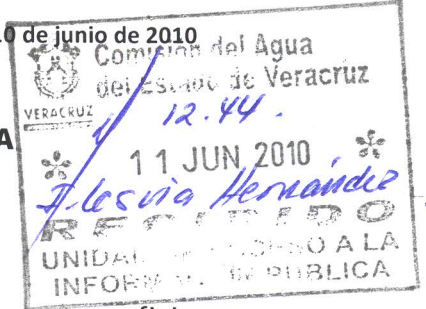 0 de junio de 2010
Comisión del Agua
del Estado de Veracruz
VERACRUZ
12.44.
A
11 JUN 2010
Hernández
RECIBIDO
UNIDAD DE ACCESO A LA
INFORMACIÓN PUBLICA